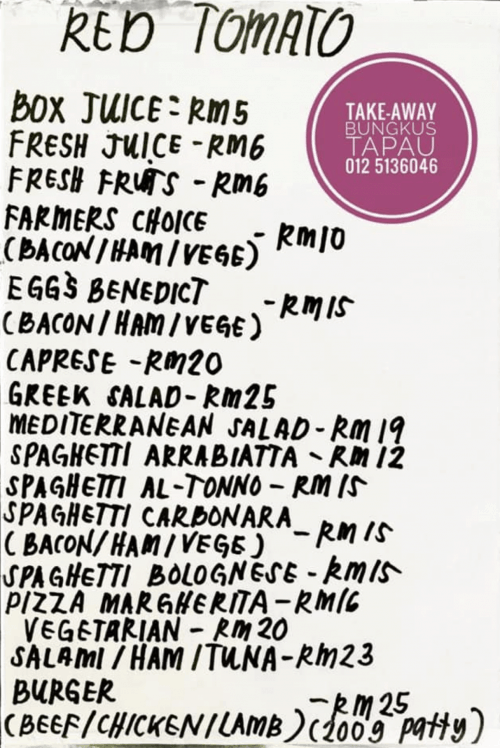 RED TOMATO
TAKE-AWAY
BUNGKUS
TAPAU
012 5136046
BOX JUICE = RM5
FRESH JUICE - RM6
FRESH FRUTS - RM6
FARMERS CHOICE
(BACON/HAM/VEGE) - RM10
EGG'S BENEDICT
(BACON/HAM/VEGE) - RM15
CAPRESE - RM20
GREEK SALAD - RM25
MEDITERRANEAN SALAD - RM19
SPAGHETTI ARRABIATTA - RM12
SPAGHETTI AL-TONNO - RM15
SPAGHETTI CARBONARA
(BACON/HAM/VEGE) - RM15
SPAGHETTI BOLOGNESE - RM15
PIZZA MARGHERITA - RM16
VEGETARIAN - RM20
SALAMI/HAM/TUNA - RM23
BURGER - RM25
(BEEF/CHICKEN/LAMB) (200g patty)